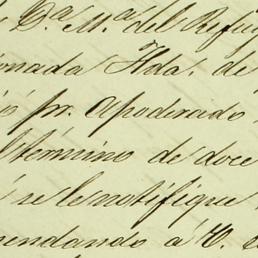 Dª. Mª. del Refug
onada Hda. de
ó pr. apoderado
l término de doce
se le notifique
mendando á V. s